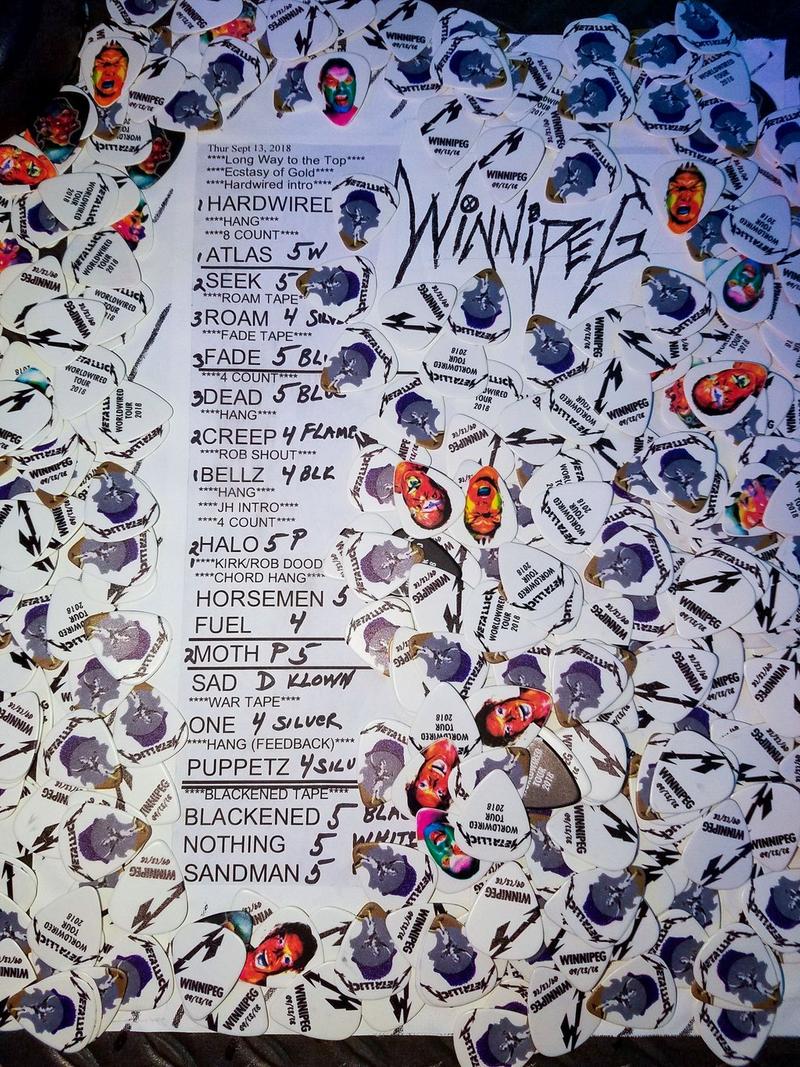 Thur Sept 13, 2018
****Long Way to the Top****
****Ecstasy of Gold****
****Hardwired intro****
1HARDWIRED
****HANG****
****8 COUNT****
1ATLAS 5W
2SEEK 5
****ROAM TAPE
3ROAM 4 SILV
****FADE TAPE****
3FADE 5 BL
****4 COUNT****
3DEAD 5 BLU
****HANG****
2CREEP 4 FLAME
****ROB SHOUT****
1BELLZ 4 BLK
****HANG****
****JH INTRO****
****4 COUNT****
2HALO 5 P
****KIRK/ROB DOOD
****CHORD HANG****
HORSEMEN 5
FUEL 4
2MOTH P5
SAD D KLOWN
****WAR TAPE****
ONE 4 SILVER
****HANG (FEEDBACK)****
PUPPETZ 4 SILV
****BLACKENED TAPE****
BLACKENED 5 BLA
NOTHING 5 WHITE
SANDMAN 5
WINNIPEG
METALLICA
WORLDWIRED
TOUR
2018
WINNIPEG
09/13/18